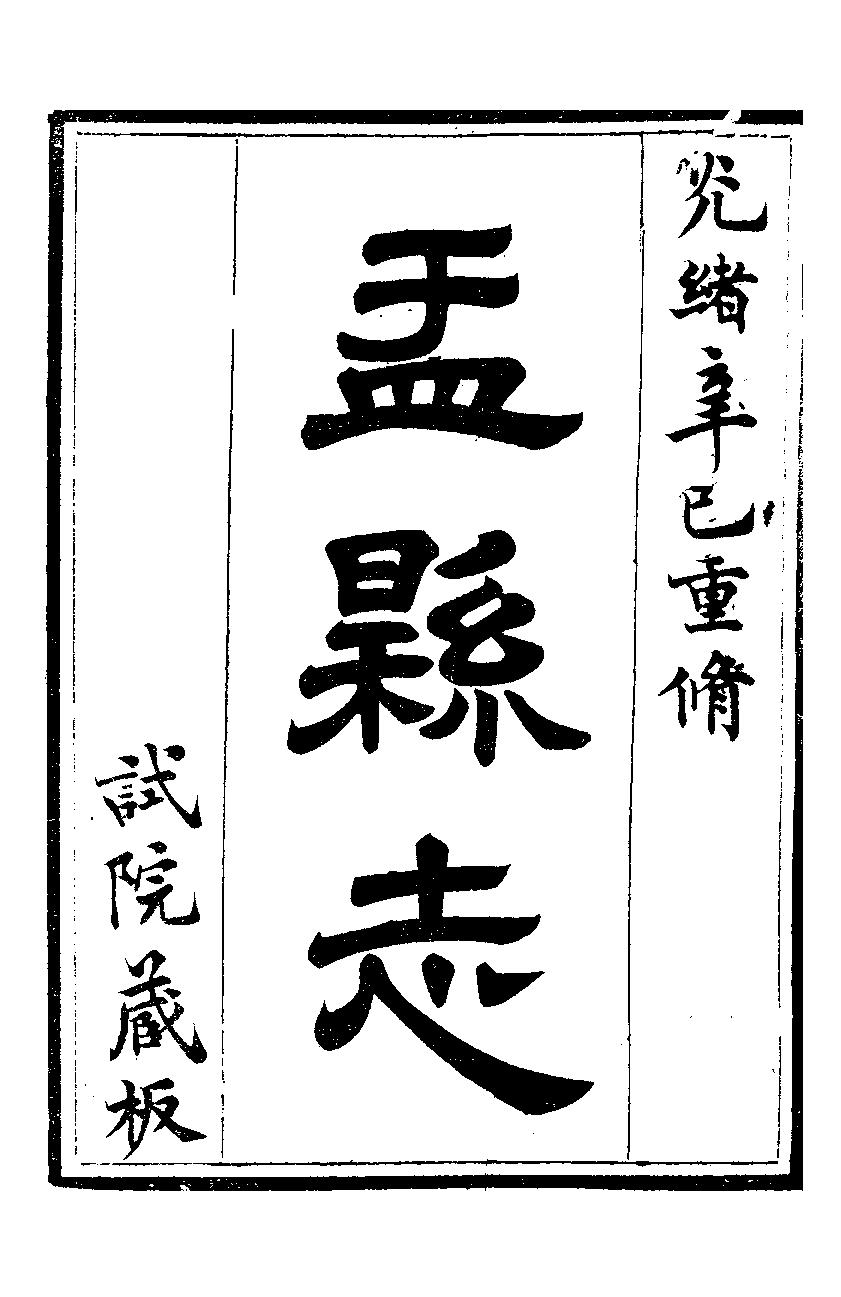 光緒辛巳重脩
盂縣志
試院藏板